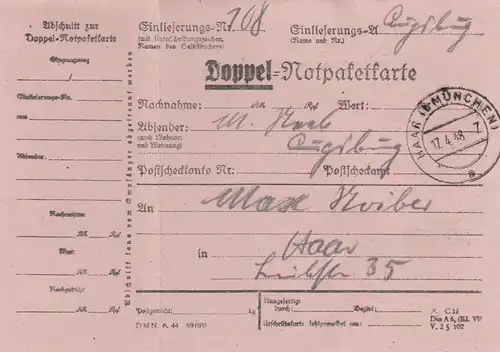 Abschnitt zur
Doppel-Notpaketkarte
Eingangstag
/
Einlieferungs-Nr.
aus
Absender:
Nachnahme:
RM. Rpf
Wert:
RM. Rpf
Nachgebühr:
RM. Rpf
Abschnitt kann vom Empfänger abgetrennt werden
Einlieferungs-Nr. 108
(mit Unterscheidungszeichen,
Namen des Selbstbuchers)
Einlieferungs-A Augsburg
(Name und Nr.)
Doppel-Notpaketkarte
Nachnahme: RM. Rpf Wert:
Absender: M.
(auch Wohnort
und Wohnung)
Augsburg
Postscheckkonto Nr: Postscheckamt
An Max
in Haar
35
HAAR (b MÜNCHEN)
17.4.48.-7
a
Postgewicht: kg
Ausgefertigt
durch: Bezirk:
Anschriftskarte fehlgemeldet am:
DMN. 6. 44
× C 18
Din A 6, (Kl. VII)
V. 2 § 102